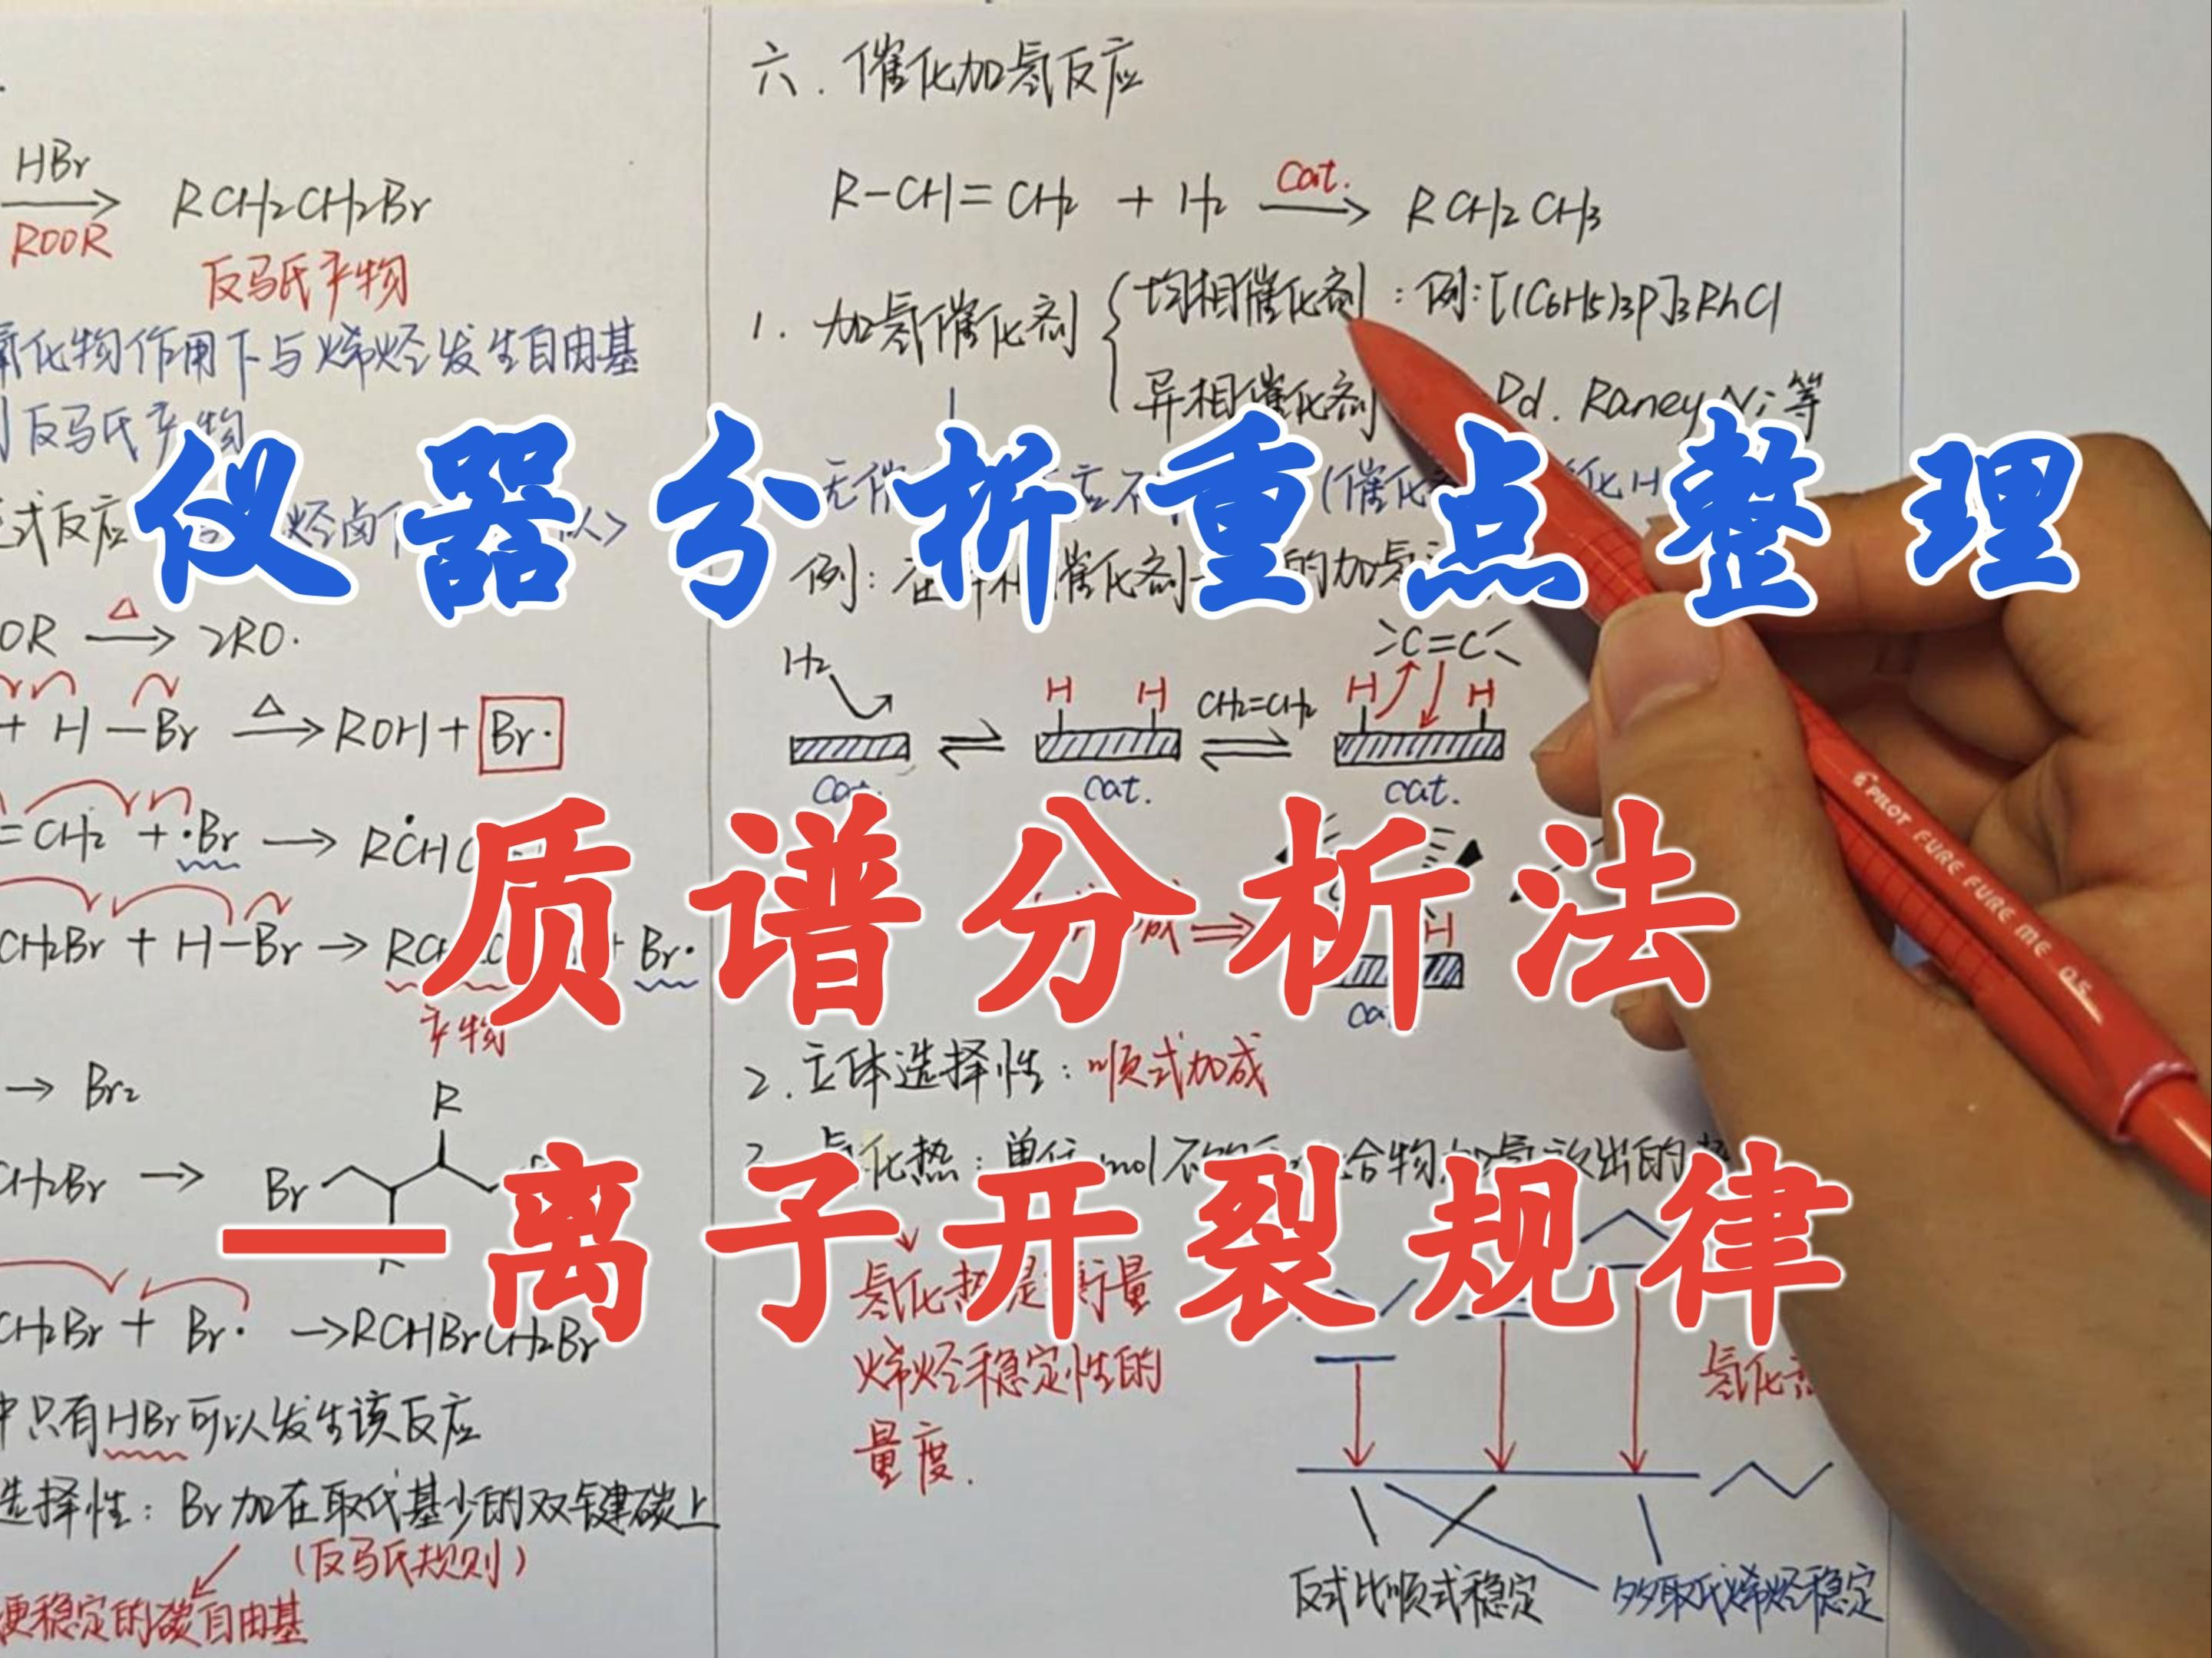 仪器分析重点整理
质谱分析法
—离子开裂规律
HBr
ROOR
RCH₂CH₂Br
反马氏产物
氧化物作用下与烯烃发生自由基
反马氏产物
式反应
OR △→ 2RO·
+ H—Br △→ ROH + Br·
=CH₂ + ·Br → RĊHC
CH₂Br + H—Br → RC + Br·
产物
→ Br₂
R
CH₂Br → Br
CH₂Br + Br· → RCHBrCH₂Br
中只有HBr可以发生该反应
选择性：Br加在取代基少的双键碳上
(反马氏规则)
更稳定的碳自由基
六.催化加氢反应
R-CH=CH₂ + H₂ cat.→ RCH₂CH₃
1. 加氢催化剂
均相催化剂：例：[(C₆H₅)₃P]₃RhCl
异相催化剂 Pd. Raney Ni等
例：
的加氢
>C=C<
H₂
H H CH₂=CH₂ H H
cat. cat. cat.
H
2.立体选择性：顺式加成
氢化热是衡量
烯烃稳定性的
量度.
反式比顺式稳定
多取代烯烃稳定
PILOT FURE FURE ME 0.5